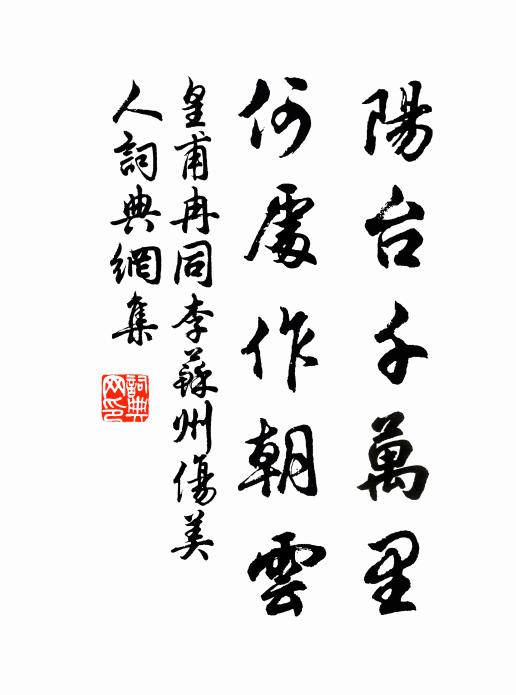 陽台千萬里
何處作朝雲
皇甫冉同李蘇州傷美
人詞典網集
詞典
网印